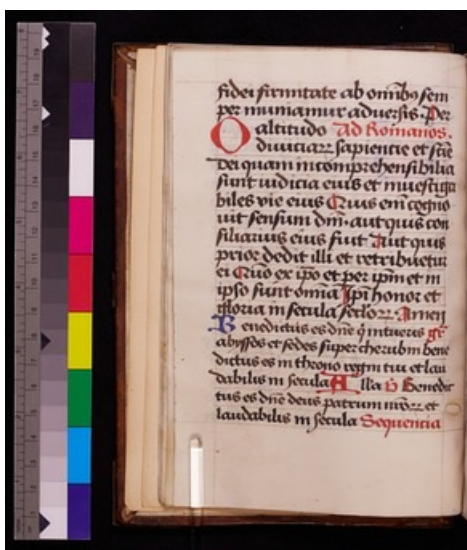 fidei firmitate ab omībꝯ sem
per muniamur adversis. Per
O altitudo Ad Romanos.
divitiaꝝ sapientie et scīe
dei quam incomprehensibilia
sunt iudicia eius et investiga
biles vie eius Quis em̄ cogno
vit sensum dm̄. aut quis con
siliarius eius fuit Aut quis
prior dedit illi et retribuetur
ei Quo ex ip̄o et per ip̄m et in
ipso sunt om̄ia Ip̄i honor et
gloria in secula sc̄loꝝ. Amen
Benedictus es dn̄e q̇ intueris gr̄
abyssos et sedes super cherubin bene
dictus es in throno regni tui et lau
dabilis in secula Alla v̄ Benedic
tus es dn̄e deus patrum nr̄oꝝ et
laudabilis in secula Sequencia